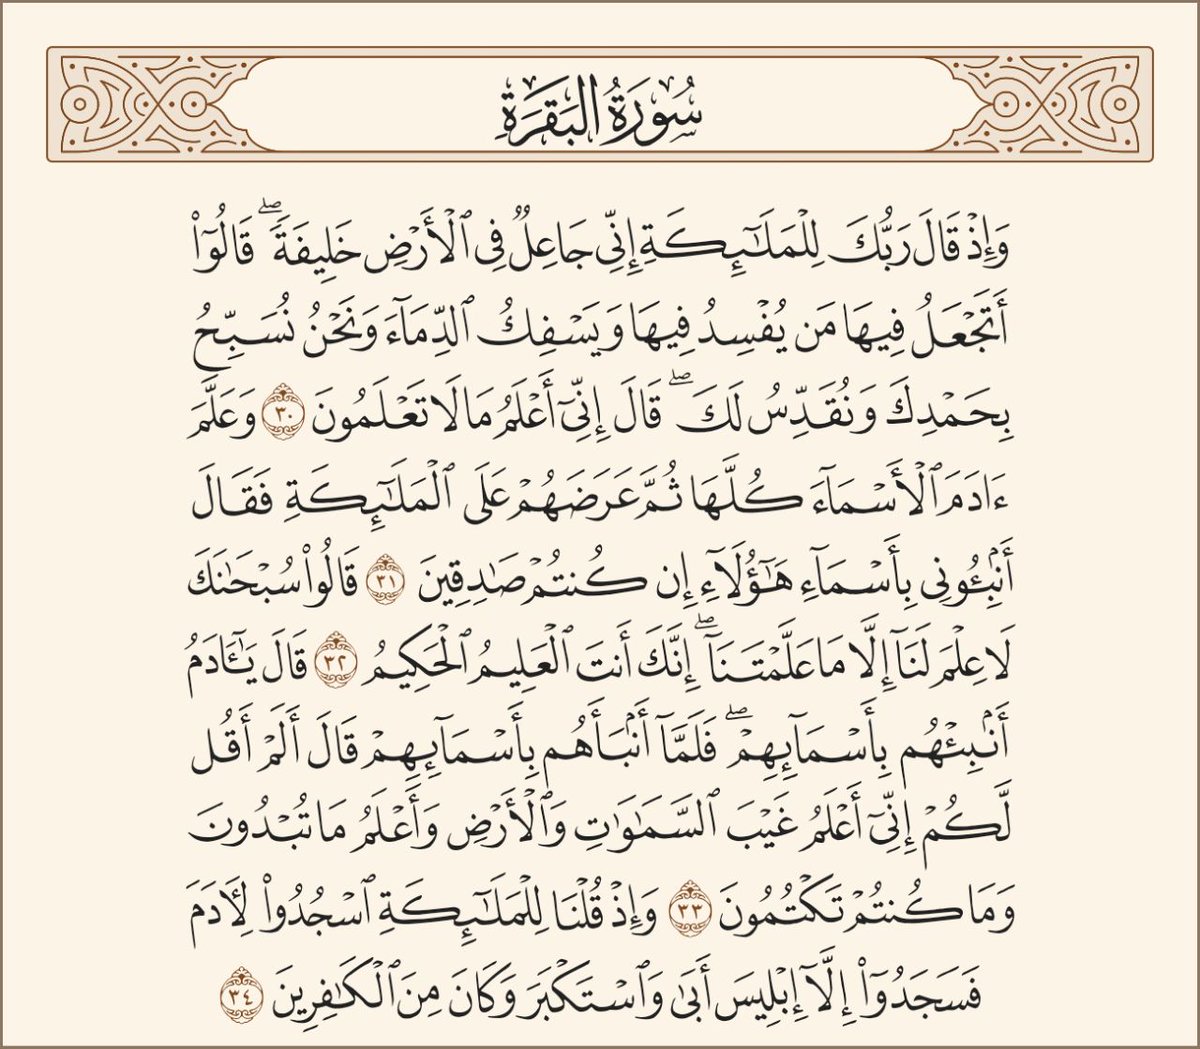 سُورَةُ البَقَرَةِ
وَإِذۡ قَالَ رَبُّكَ لِلۡمَلَٰٓئِكَةِ إِنِّي جَاعِلٞ فِي ٱلۡأَرۡضِ خَلِيفَةٗۖ قَالُوٓاْ
أَتَجۡعَلُ فِيهَا مَن يُفۡسِدُ فِيهَا وَيَسۡفِكُ ٱلدِّمَآءَ وَنَحۡنُ نُسَبِّحُ
بِحَمۡدِكَ وَنُقَدِّسُ لَكَۖ قَالَ إِنِّيٓ أَعۡلَمُ مَا لَا تَعۡلَمُونَ ٣٠ وَعَلَّمَ
ءَادَمَ ٱلۡأَسۡمَآءَ كُلَّهَا ثُمَّ عَرَضَهُمۡ عَلَى ٱلۡمَلَٰٓئِكَةِ فَقَالَ
أَنۢبِـُٔونِي بِأَسۡمَآءِ هَٰٓؤُلَآءِ إِن كُنتُمۡ صَٰدِقِينَ ٣١ قَالُواْ سُبۡحَٰنَكَ
لَا عِلۡمَ لَنَآ إِلَّا مَا عَلَّمۡتَنَآۖ إِنَّكَ أَنتَ ٱلۡعَلِيمُ ٱلۡحَكِيمُ ٣٢ قَالَ يَٰٓـَٔادَمُ
أَنۢبِئۡهُم بِأَسۡمَآئِهِمۡۖ فَلَمَّآ أَنۢبَأَهُم بِأَسۡمَآئِهِمۡ قَالَ أَلَمۡ أَقُل
لَّكُمۡ إِنِّيٓ أَعۡلَمُ غَيۡبَ ٱلسَّمَٰوَٰتِ وَٱلۡأَرۡضِ وَأَعۡلَمُ مَا تُبۡدُونَ
وَمَا كُنتُمۡ تَكۡتُمُونَ ٣٣ وَإِذۡ قُلۡنَا لِلۡمَلَٰٓئِكَةِ ٱسۡجُدُواْ لِأٓدَمَ
فَسَجَدُوٓاْ إِلَّآ إِبۡلِيسَ أَبَىٰ وَٱسۡتَكۡبَرَ وَكَانَ مِنَ ٱلۡكَٰفِرِينَ ٣٤